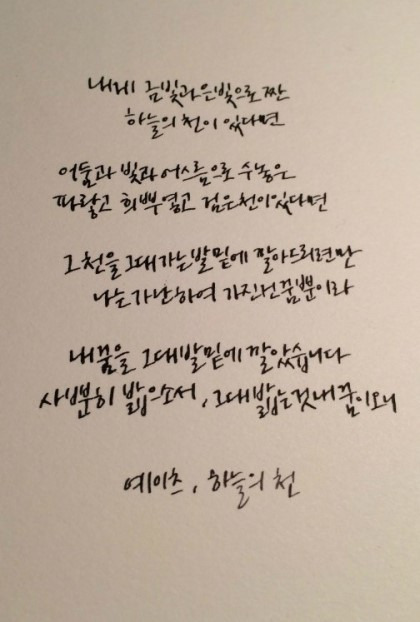 내게 금빛과 은빛으로 짠
하늘의 천이 있다면
어둠과 빛과 어스름으로 수놓은
파랗고 희뿌옇고 검은 천이 있다면
그 천을 그대 가는 발밑에 깔아드리련만
나는 가난하여 가진 건 꿈뿐이라
내 꿈을 그대 발밑에 깔았습니다
사뿐히 밟으소서, 그대 밟는 것 내 꿈이오니
예이츠, 하늘의 천